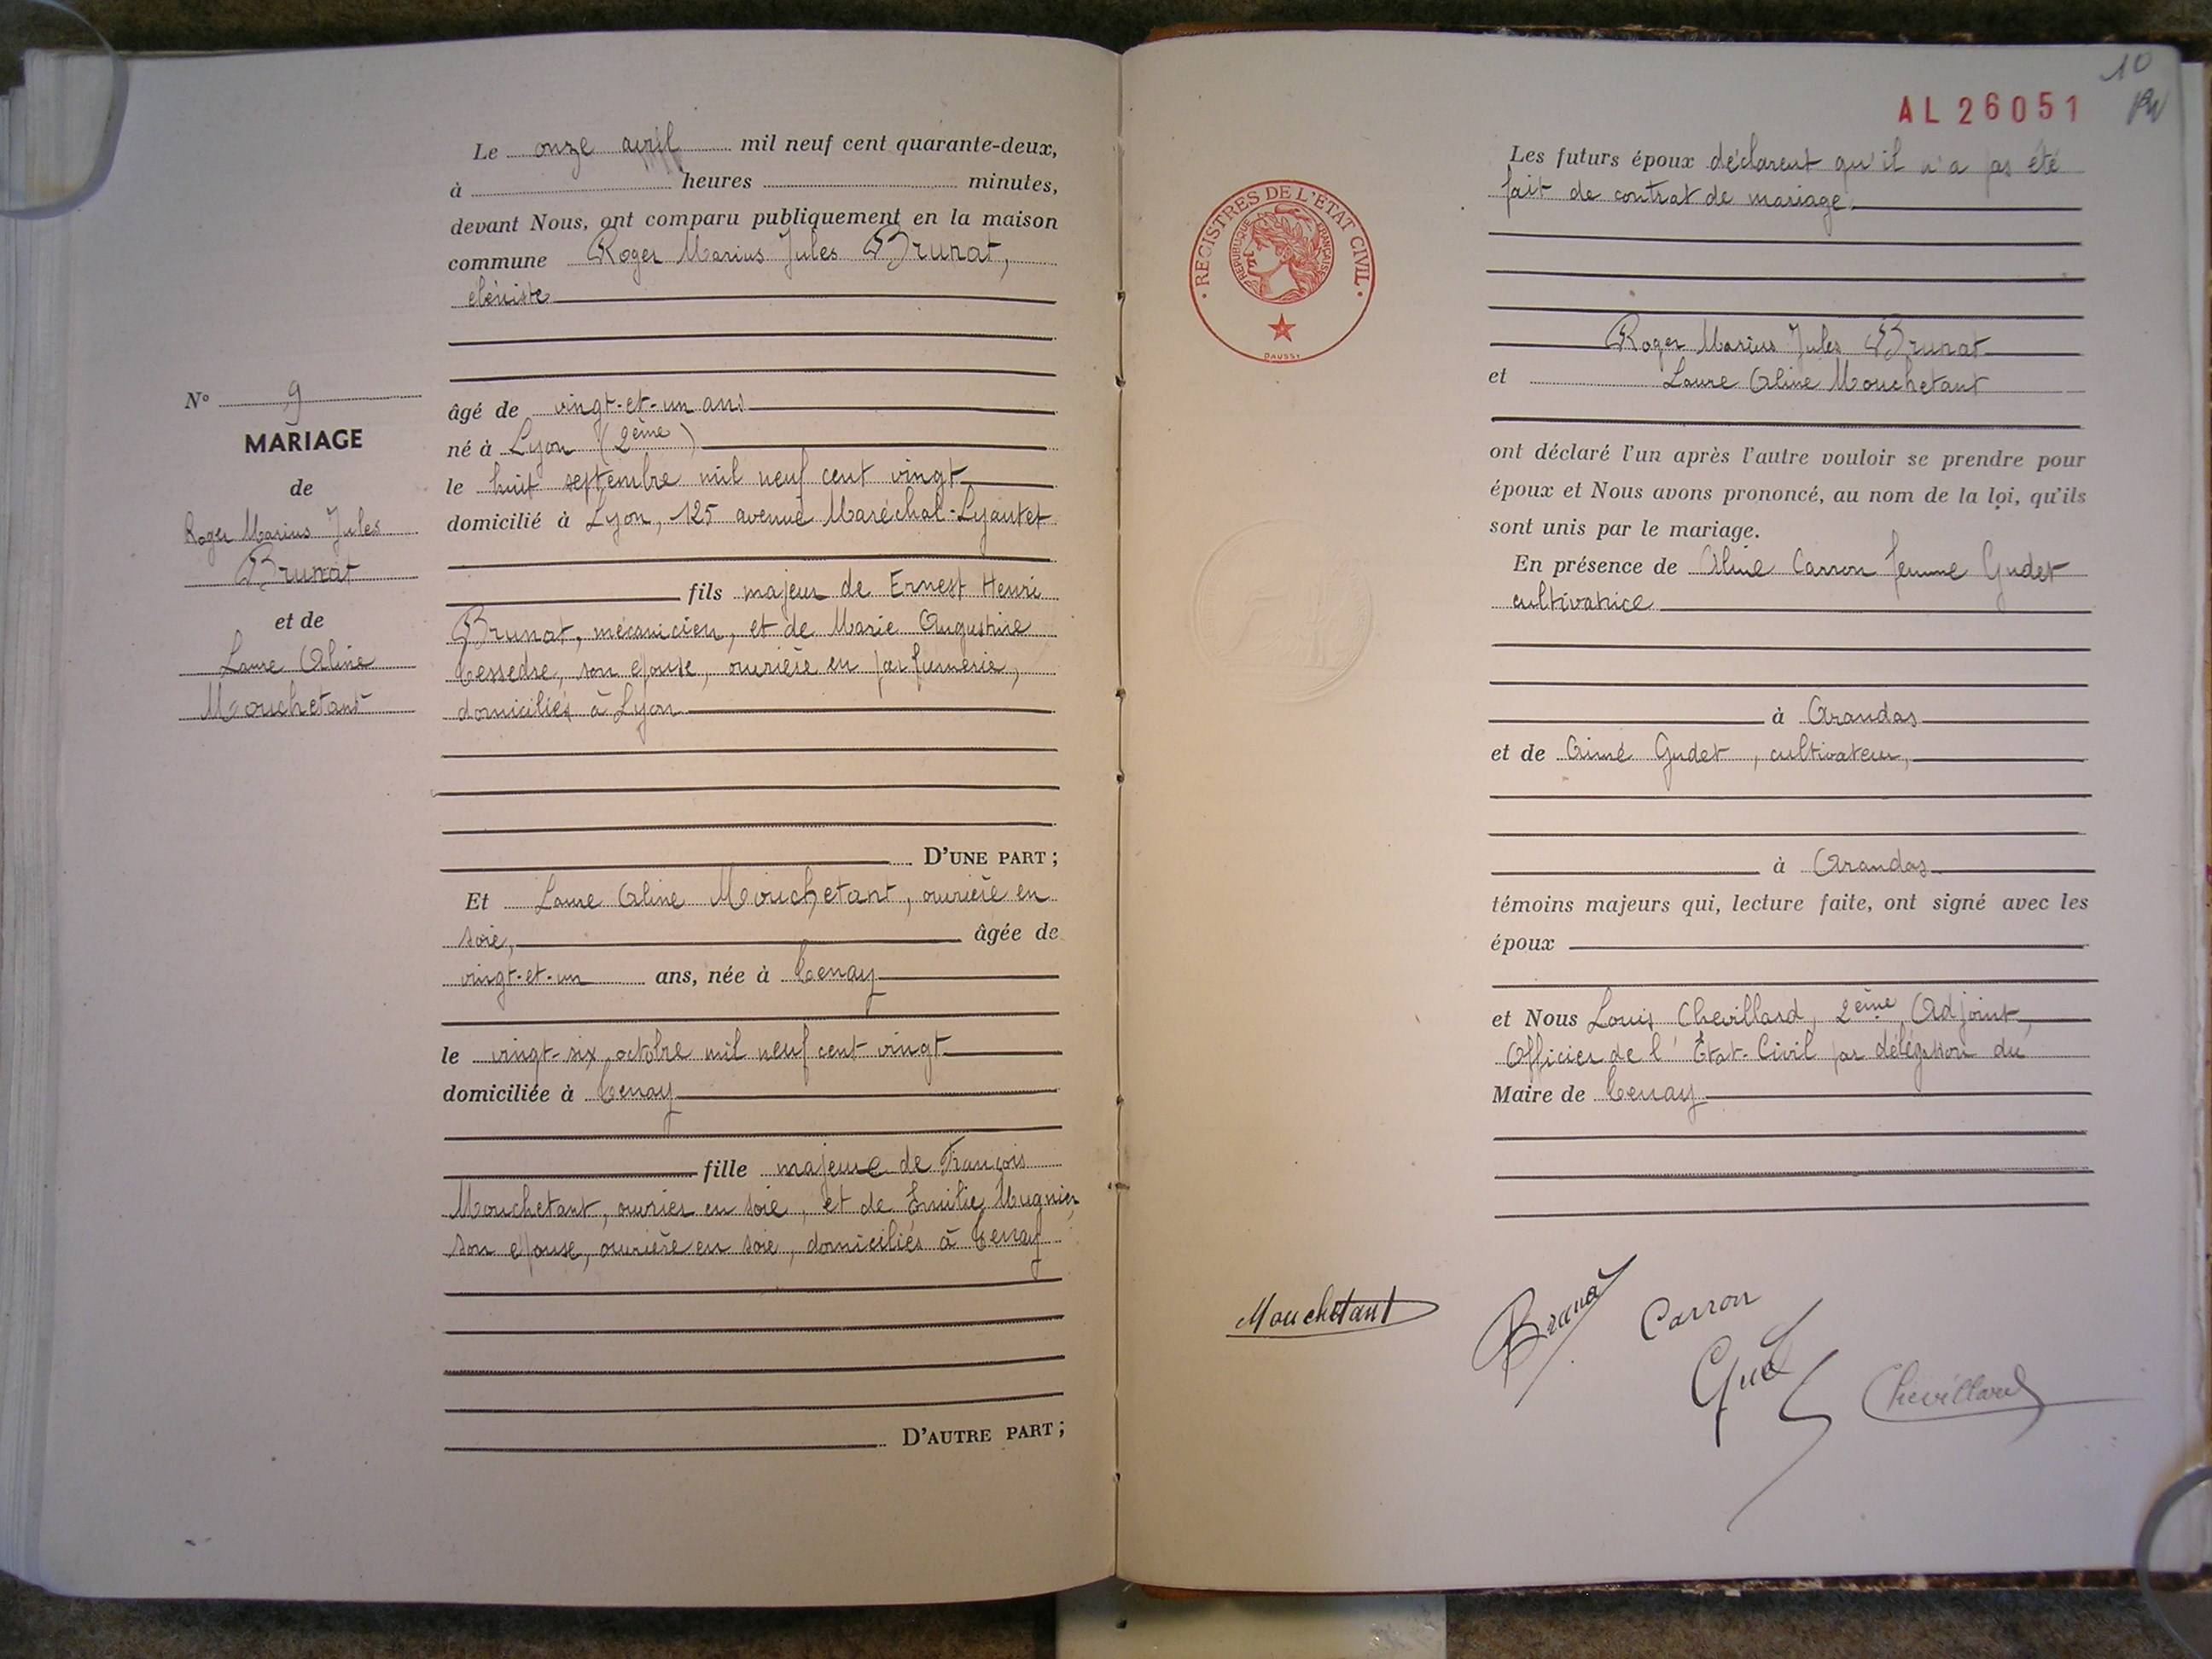 Le onze avril mil neuf cent quarante-deux,
à heures minutes,
devant Nous, ont comparu publiquement en la maison
commune Roger Marius Jules Brunat,
ébéniste
âgé de vingt-et-un ans
né à Lyon (2ème)
le huit septembre mil neuf cent vingt
domicilié à Lyon, 125 avenue Maréchal-Lyautet
fils majeur de Ernest Henri
Brunat, mécanicien, et de Marie Augustine
Tessedre, son épouse, ouvrière en parfumerie,
domiciliés à Lyon
D'UNE PART ;
Et Laure Aline Mouchetant, ouvrière en
soie, âgée de
vingt-et-un ans, née à Tenay
le vingt-six octobre mil neuf cent vingt
domiciliée à Tenay
fille majeure de François
Mouchetant, ouvrier en soie, et de Emilie Mugnier,
son épouse, ouvrière en soie, domiciliés à Tenay
D'AUTRE PART ;
N° 9
MARIAGE
de
Roger Marius Jules
Brunat
et de
Laure Aline
Mouchetant
10
AL 26051
REGISTRES DE L'ÉTAT CIVIL
RÉPUBLIQUE FRANÇAISE
DAUSSY
Les futurs époux déclarent qu'il n'a pas été
fait de contrat de mariage.
Roger Marius Jules Brunat
et Laure Aline Mouchetant
ont déclaré l'un après l'autre vouloir se prendre pour
époux et Nous avons prononcé, au nom de la loi, qu'ils
sont unis par le mariage.
En présence de Aline Carron femme Gudet
cultivatrice
à Arandas
et de Aimé Gudet, cultivateur,
à Arandas
témoins majeurs qui, lecture faite, ont signé avec les
époux
et Nous Louis Chevillard, 2ème Adjoint,
Officier de l'État-Civil par délégation du
Maire de Tenay
Mouchetant
Brunat
Carron
Chevillard